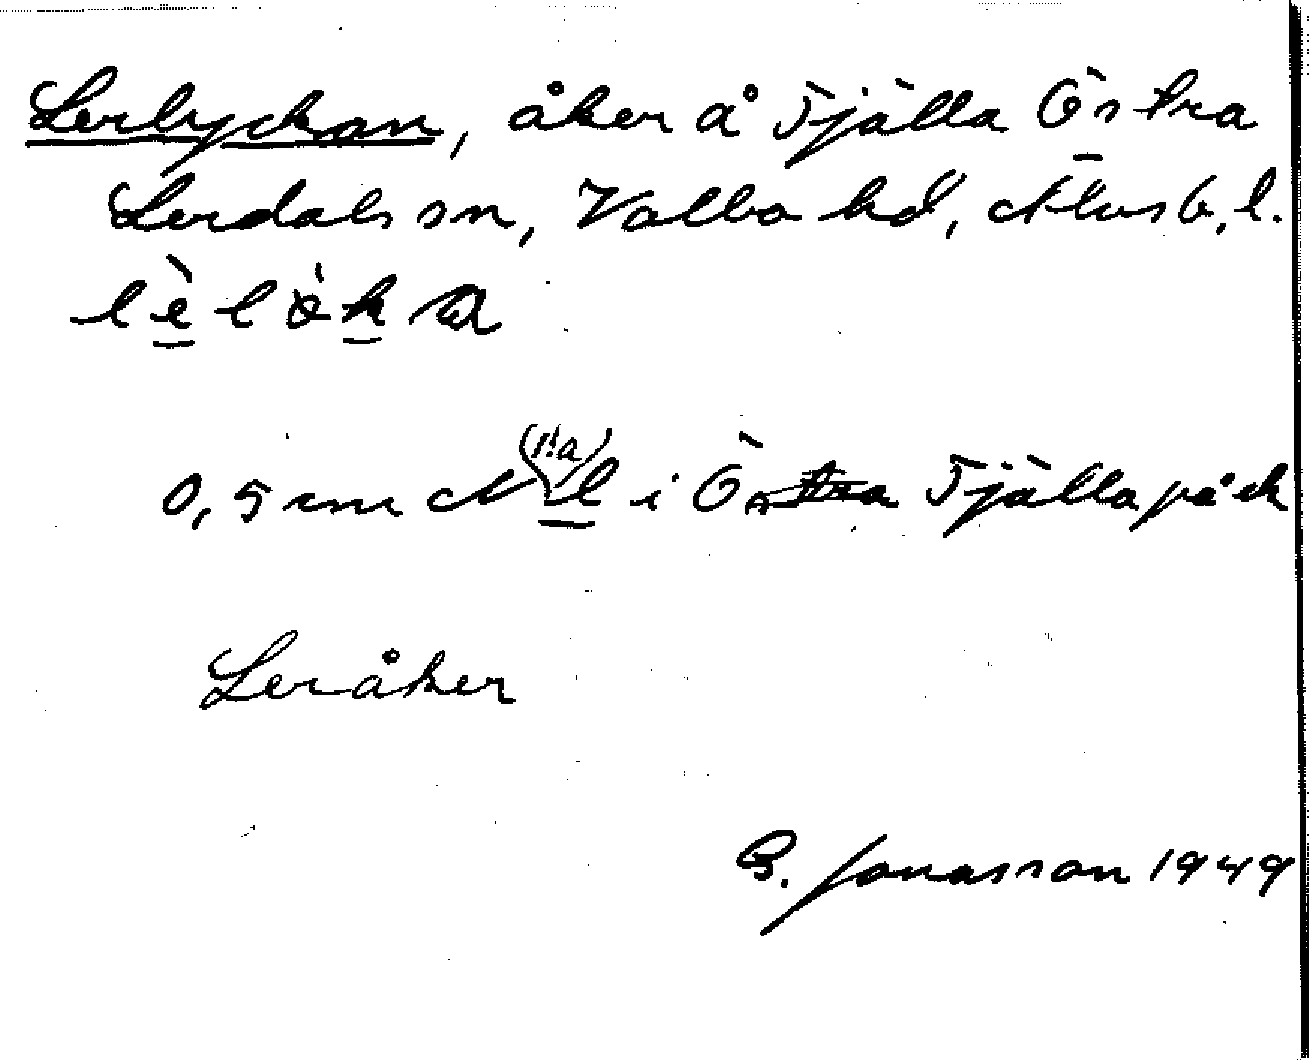 Lerlyckan, åker å Tjälla Östra
Lerdals sn, Valbo hd, Älvsb. l.
0,5 cm N l i Ö. Tjälla på ek
Leråker
G. Jonasson 1949